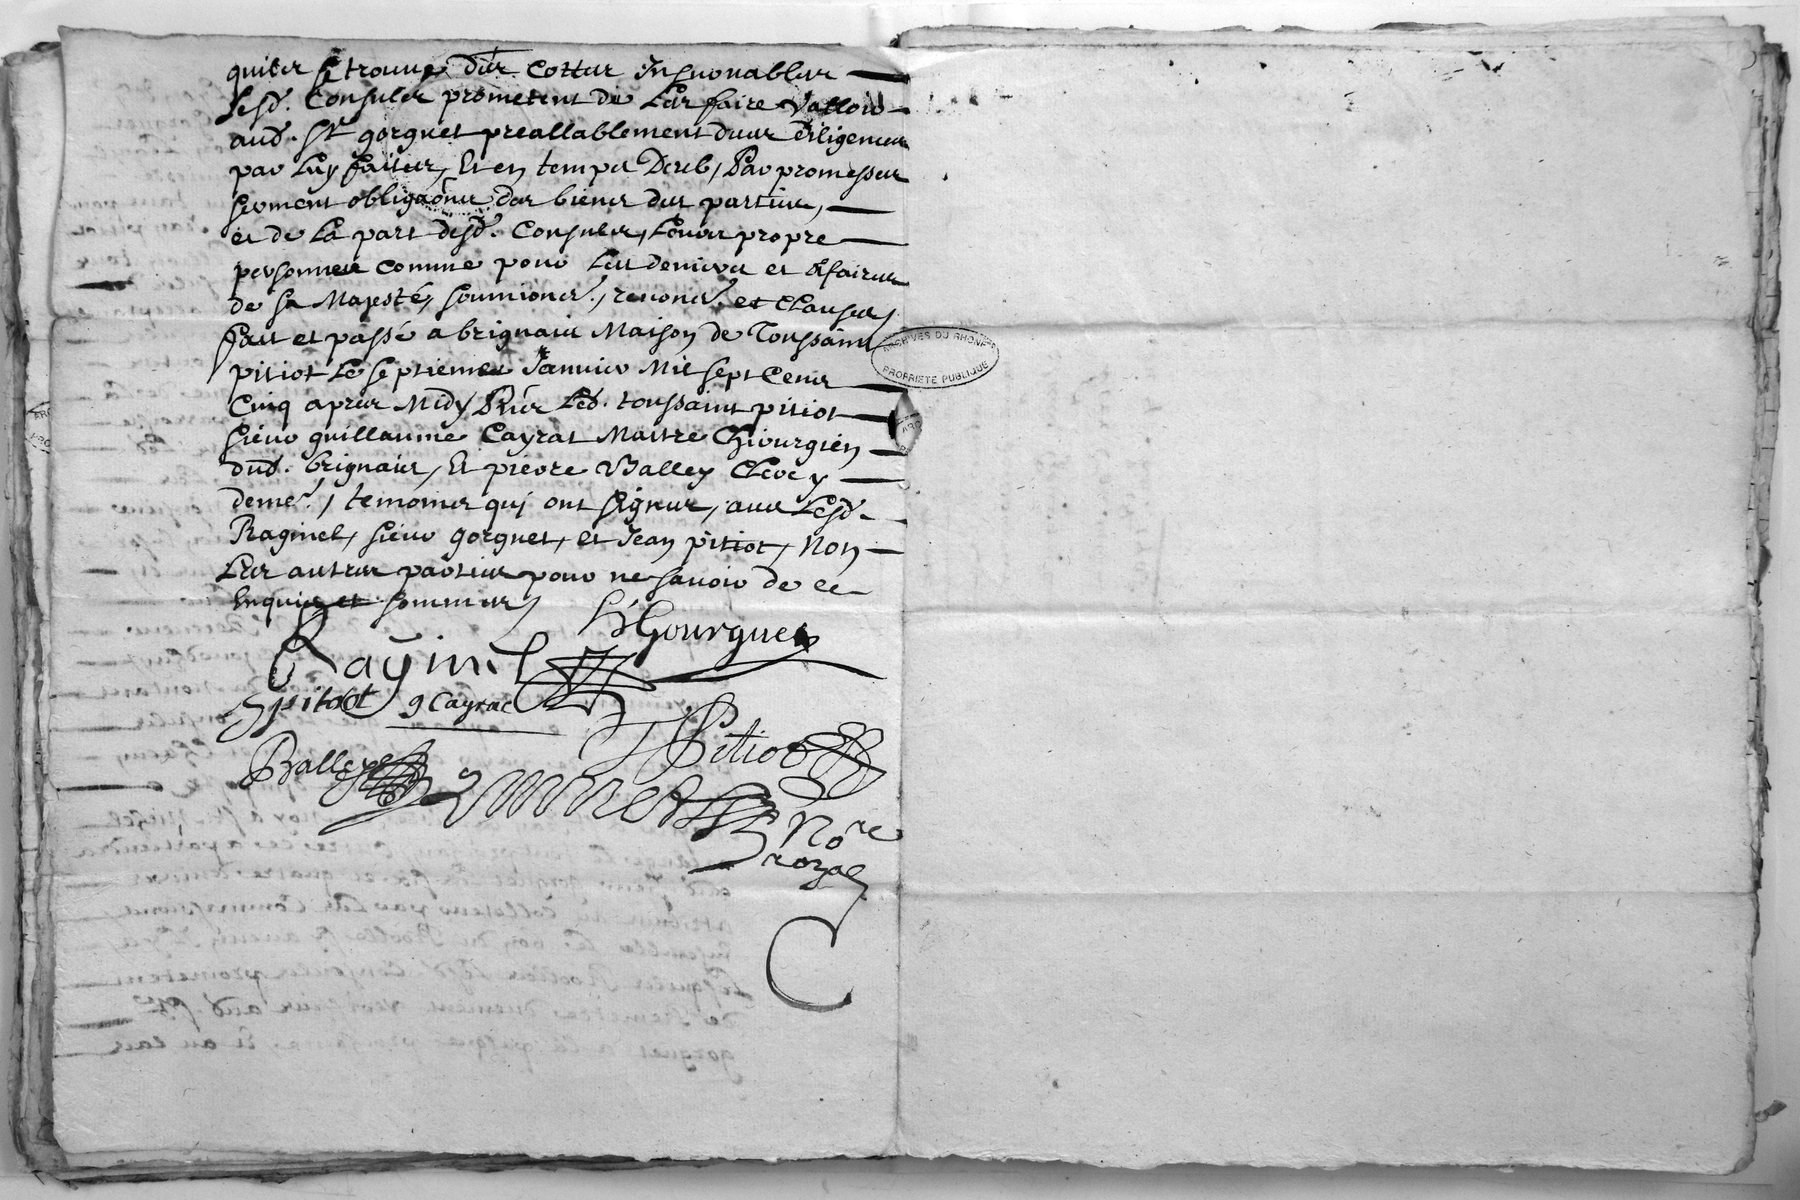 quites se trouve des cottes insuonables
lesd. Consules prometent de les faire valloir
aud. Sr gorguet preallablement dues diligences
par luy faites, Et en temps Deub, Par promesses
serment obligaons des biens des parties,
et de la part desd. Consules, leurs propre
personnes comme pour les deniers et affaires
de sa Majesté, soumions., renons. et clauses
fait et passé a brignais Maison de Toussaint
pitiot le septieme Janvier Mil sept Cens
Cinq apres Midy Pnts led. toussaint pitiot
sieur guillaume Cayrat Maitre Chirurgien
dud. brignais, Et pierre Balley Clerc y
demt., temoins qui ont signes, avec lesd.
Raginel, sieur gorguet, et Jean pitiot, Non
les autres parties pour ne savoir de ce
enquis et sommes
Gourguet
Rayinel
pitiot g Cayrac
Pitiot
Balley
Nore
Royal
C
ARCHIVES DU RHONE
PROPRIETE PUBLIQUE